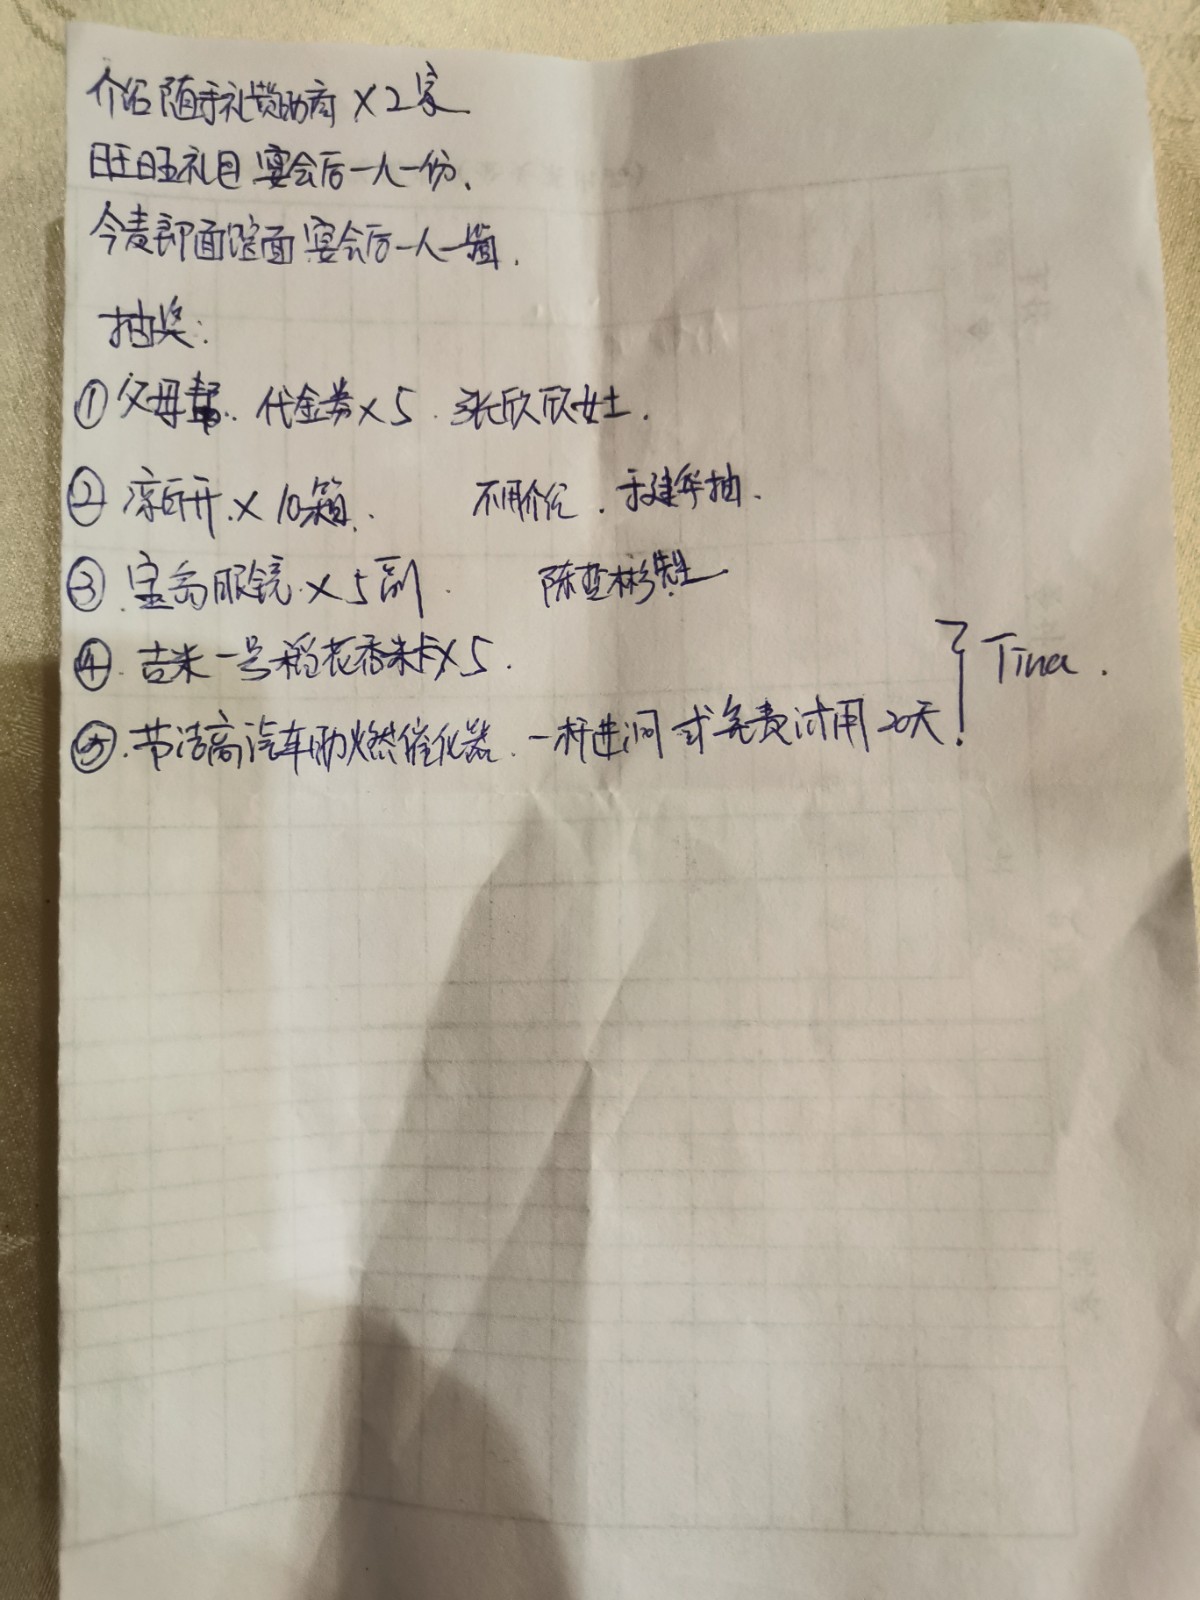 介绍随手礼赞助商 ×2家
旺旺礼包 宴会后一人一份、
今麦郎面馆面 宴会后一人一箱.
抽奖:
① 父母帮.. 代金券×5. 张欣欣女士.
② 凉白开.×10箱. 不用介绍. 于建华抽.
③ 宝岛眼镜.×5副. 陈亚彬先生
④. 吉米一号稻花香米卡×5.
⑤. 节洁高汽车助燃催化器. 一杆进洞 或 免费试用20天. } Tina.